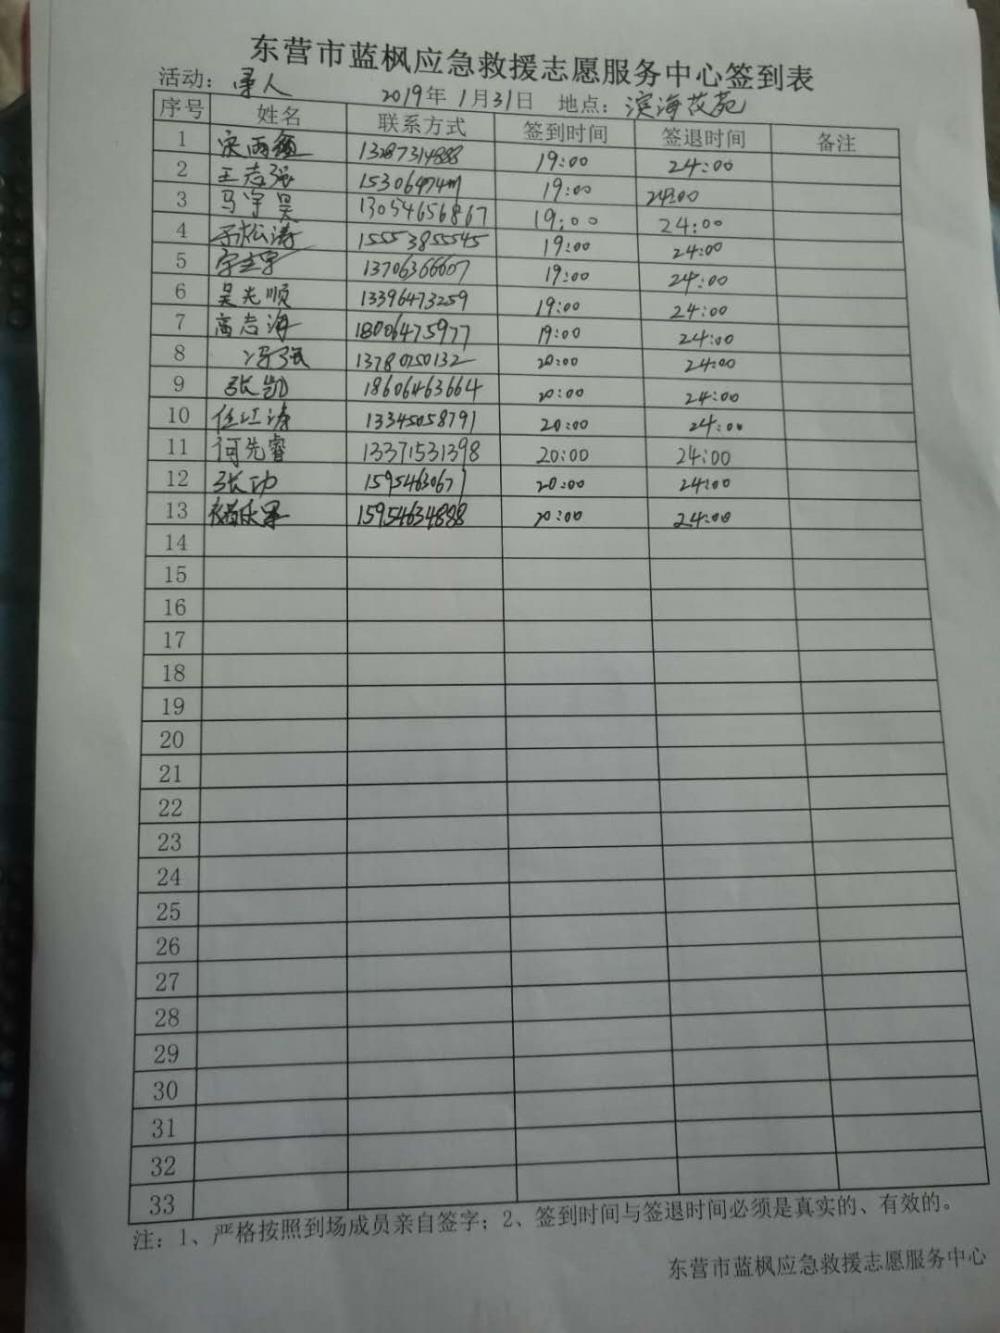 东营市蓝枫应急救援志愿服务中心签到表
活动：寻人 2019年1月31日 地点：滨海花苑
序号 姓名 联系方式 签到时间 签退时间 备注
1 宋雨鑫 13287314888 19:00 24:00
2 王志强 19:00 24:00
3 马宇昊 13054656867 19:00 24:00
4 松涛 15553855545 19:00 24:00
5 13706366607 19:00 24:00
6 吴光顺 13396473259 19:00 24:00
7 高志海 18006475977 19:00 24:00
8 冯强 13780750132 20:00 24:00
9 张凯 18606463664 20:00 24:00
10 任江涛 13345058791 20:00 24:00
11 何先睿 13371531398 20:00 24:00
12 张功 15954630671 20:00 24:00
13 15954634888 20:00 24:00
14
15
16
17
18
19
20
21
22
23
24
25
26
27
28
29
30
31
32
33
注：1、严格按照到场成员亲自签字；2、签到时间与签退时间必须是真实的、有效的。
东营市蓝枫应急救援志愿服务中心